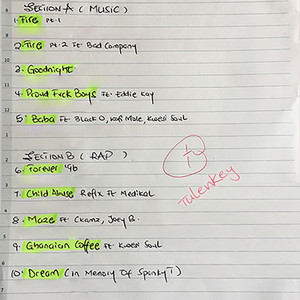 SECTION A (MUSIC)
1. Fire Pt.1
2. Fire Pt.2 Ft Bad Company
3. Goodnight
4. Proud Fvck Boys Ft. Eddie Kay
5. Baba Ft. Black O, Kofi Mole, Kwesi Soul
SECTION B (RAP)
6. Forever 96
7. Child Abuse Refix Ft Medikal
8. Maze Ft. Ckanz, Joey B.
9. Ghanaian Coffee Ft. Kwesi Soul
10. Dream (In Memory Of Spanky T)
10
Tulenkey